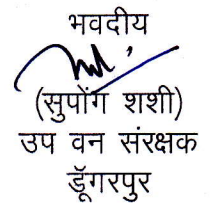 भवदीय
(सुपोंग शशी)
उप वन संरक्षक
डूँगरपुर